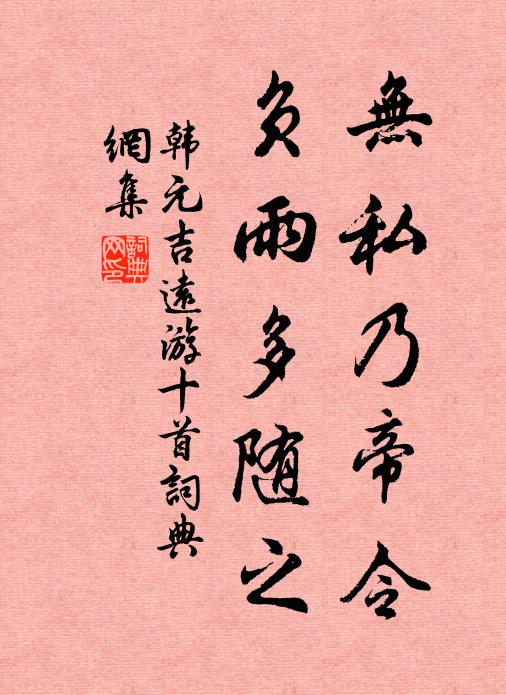 無私乃帝令
負雨多随之
韩元吉遠游十首詞典
網集
詞典
网印